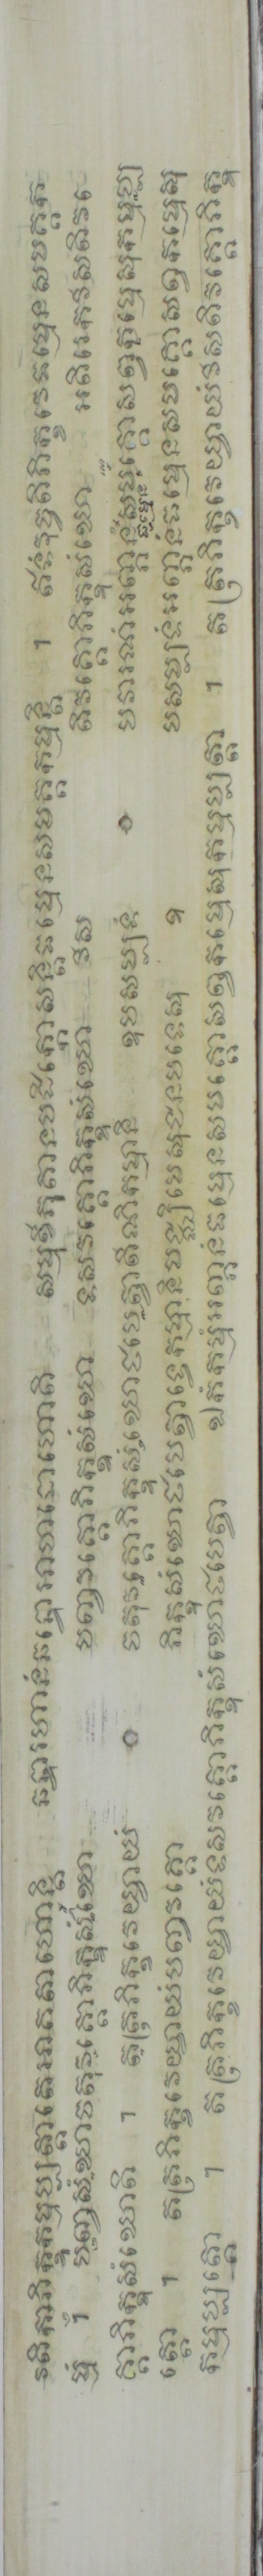 រតិកាភិក្ខុកម្មប្បត្តាតេអាគតាហោន្តិ ឆន្ទារហានំឆន្ទោអាហដោហោតិ សម្មុខីភុតានបដិក្កោសន្តិធម្មេនសមគ្គកម្មន្តិ ។ ឥទំវុច្ចតិភិក្ខវេធម្មេនសមគ្គក
ម្មំ ។ បញ្ចសំឃាចតុវគ្គោភិក្ខុសំឃោ បញ្ចវគ្គោភិក្ខុសំឃោ ទសវគ្គោភិក្ខុសំឃោ វីស តិវគ្គោភិក្ខុសំឃោ អតិរេកវីសតិវ
គ្គោភិក្ខុសំឃោតិ ។ តត្រភិក្ខវេយ្វាយំ ០ ចតុវគ្គោភិក្ខុសំឃោឋបេត្វាតិណិកម្មានិ ឧបសម្បទំ ០ បវារណំអព្ភានំធម្មេនសមគ្គោសព្វកម្មេសុកម្មប្ប
ត្តោ ។ តត្រភិក្ខវេយ្វាយំបញ្ចវគ្គោ ភិក្ខុសំឃោឋបេត្វាទ្វេកម្មានិមជ្ឈិមេសុជនបទេសុ ឧ បសម្បទំអព្ភានំធម្មេនសមគ្គោសព្វកម្មេសុ
កម្មប្បត្តោ ។ តត្រភិក្ខវេយ្វាយំទសវគ្គោភិក្ខុសំឃោឋបេត្វា ឯកំកម្មំអព្ភានំធម្មេនសមគ្គោសព្វកម្មេសុកម្មប្បត្តោ ។ តត្រភិក្ខវេយ្វាយំវីសតិវគ្គោភិក្ខុ